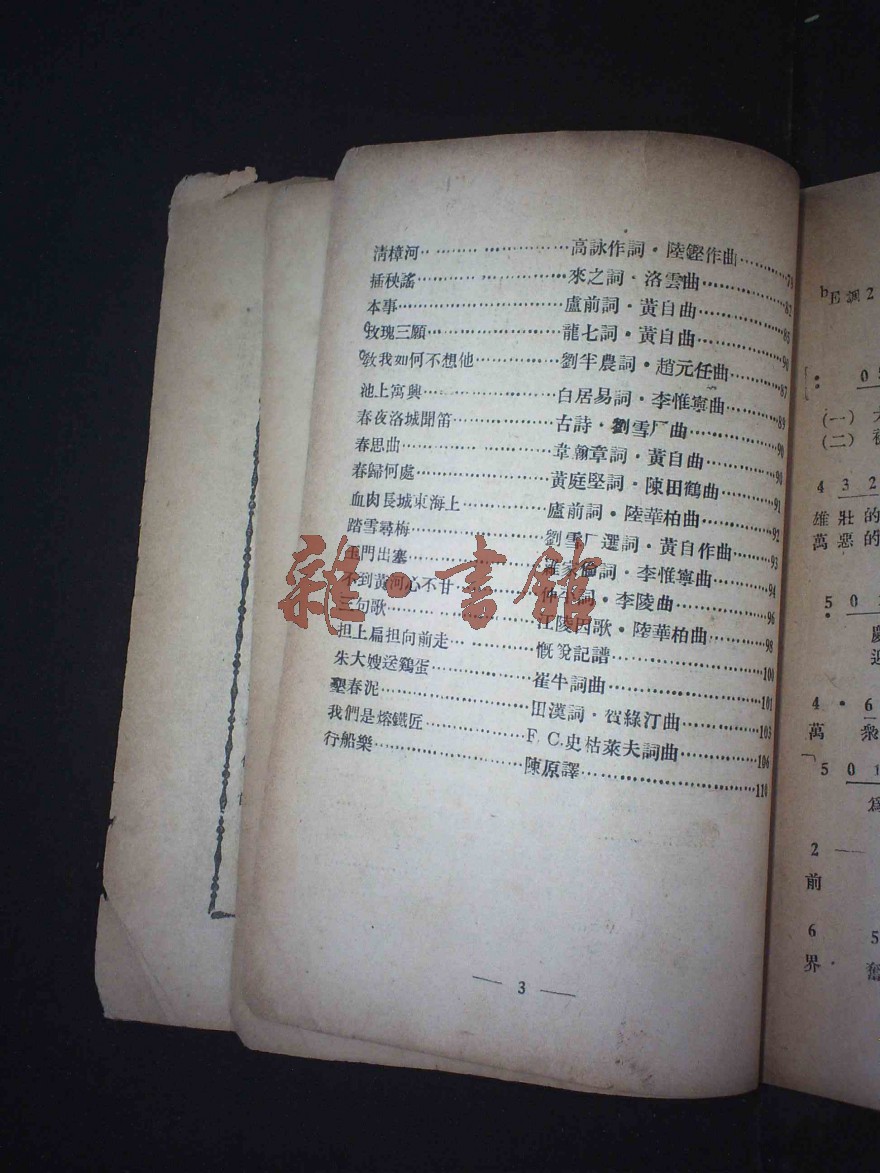 清樟河……高詠作詞・陸鏗作曲……79
插秧謠……來之詞・洛雲曲……82
本事……盧前詞・黃自曲……85
玫瑰三願……龍七詞・黃自曲……90
敎我如何不想他……劉半農詞・趙元任曲……87
池上寓興……白居易詞・李惟寧曲……89
春夜洛城聞笛……古詩・劉雪厂曲……90
春思曲……韋翰章詞・黃自曲……90
春歸何處……黃庭堅詞・陳田鶴曲……91
血肉長城東海上……盧前詞・陸華柏曲……92
踏雪尋梅……劉雪厂選詞・黃自作曲……93
玉門出塞……羅家倫詞・李惟寧曲……94
不到黃河心不甘……詞・李陵曲……96
三句歌……江陵因歌・陸華柏曲……98
担上扁担向前走……慨記譜……100
朱大嫂送鷄蛋……崔牛詞曲……101
墾春泥……田漢詞・賀綠汀曲……103
我們是熔鐵匠……F.C.史枯萊夫詞曲……106
行船樂……陳原譯……110
— 3 —
雜・書館
bE調 2
0 5
(一)
(二)
4 3 2
雄壯的
萬惡的
5 0
4 ・ 6
萬 衆
5 0 1
爲
2 —
前
6 5
界・ 奮